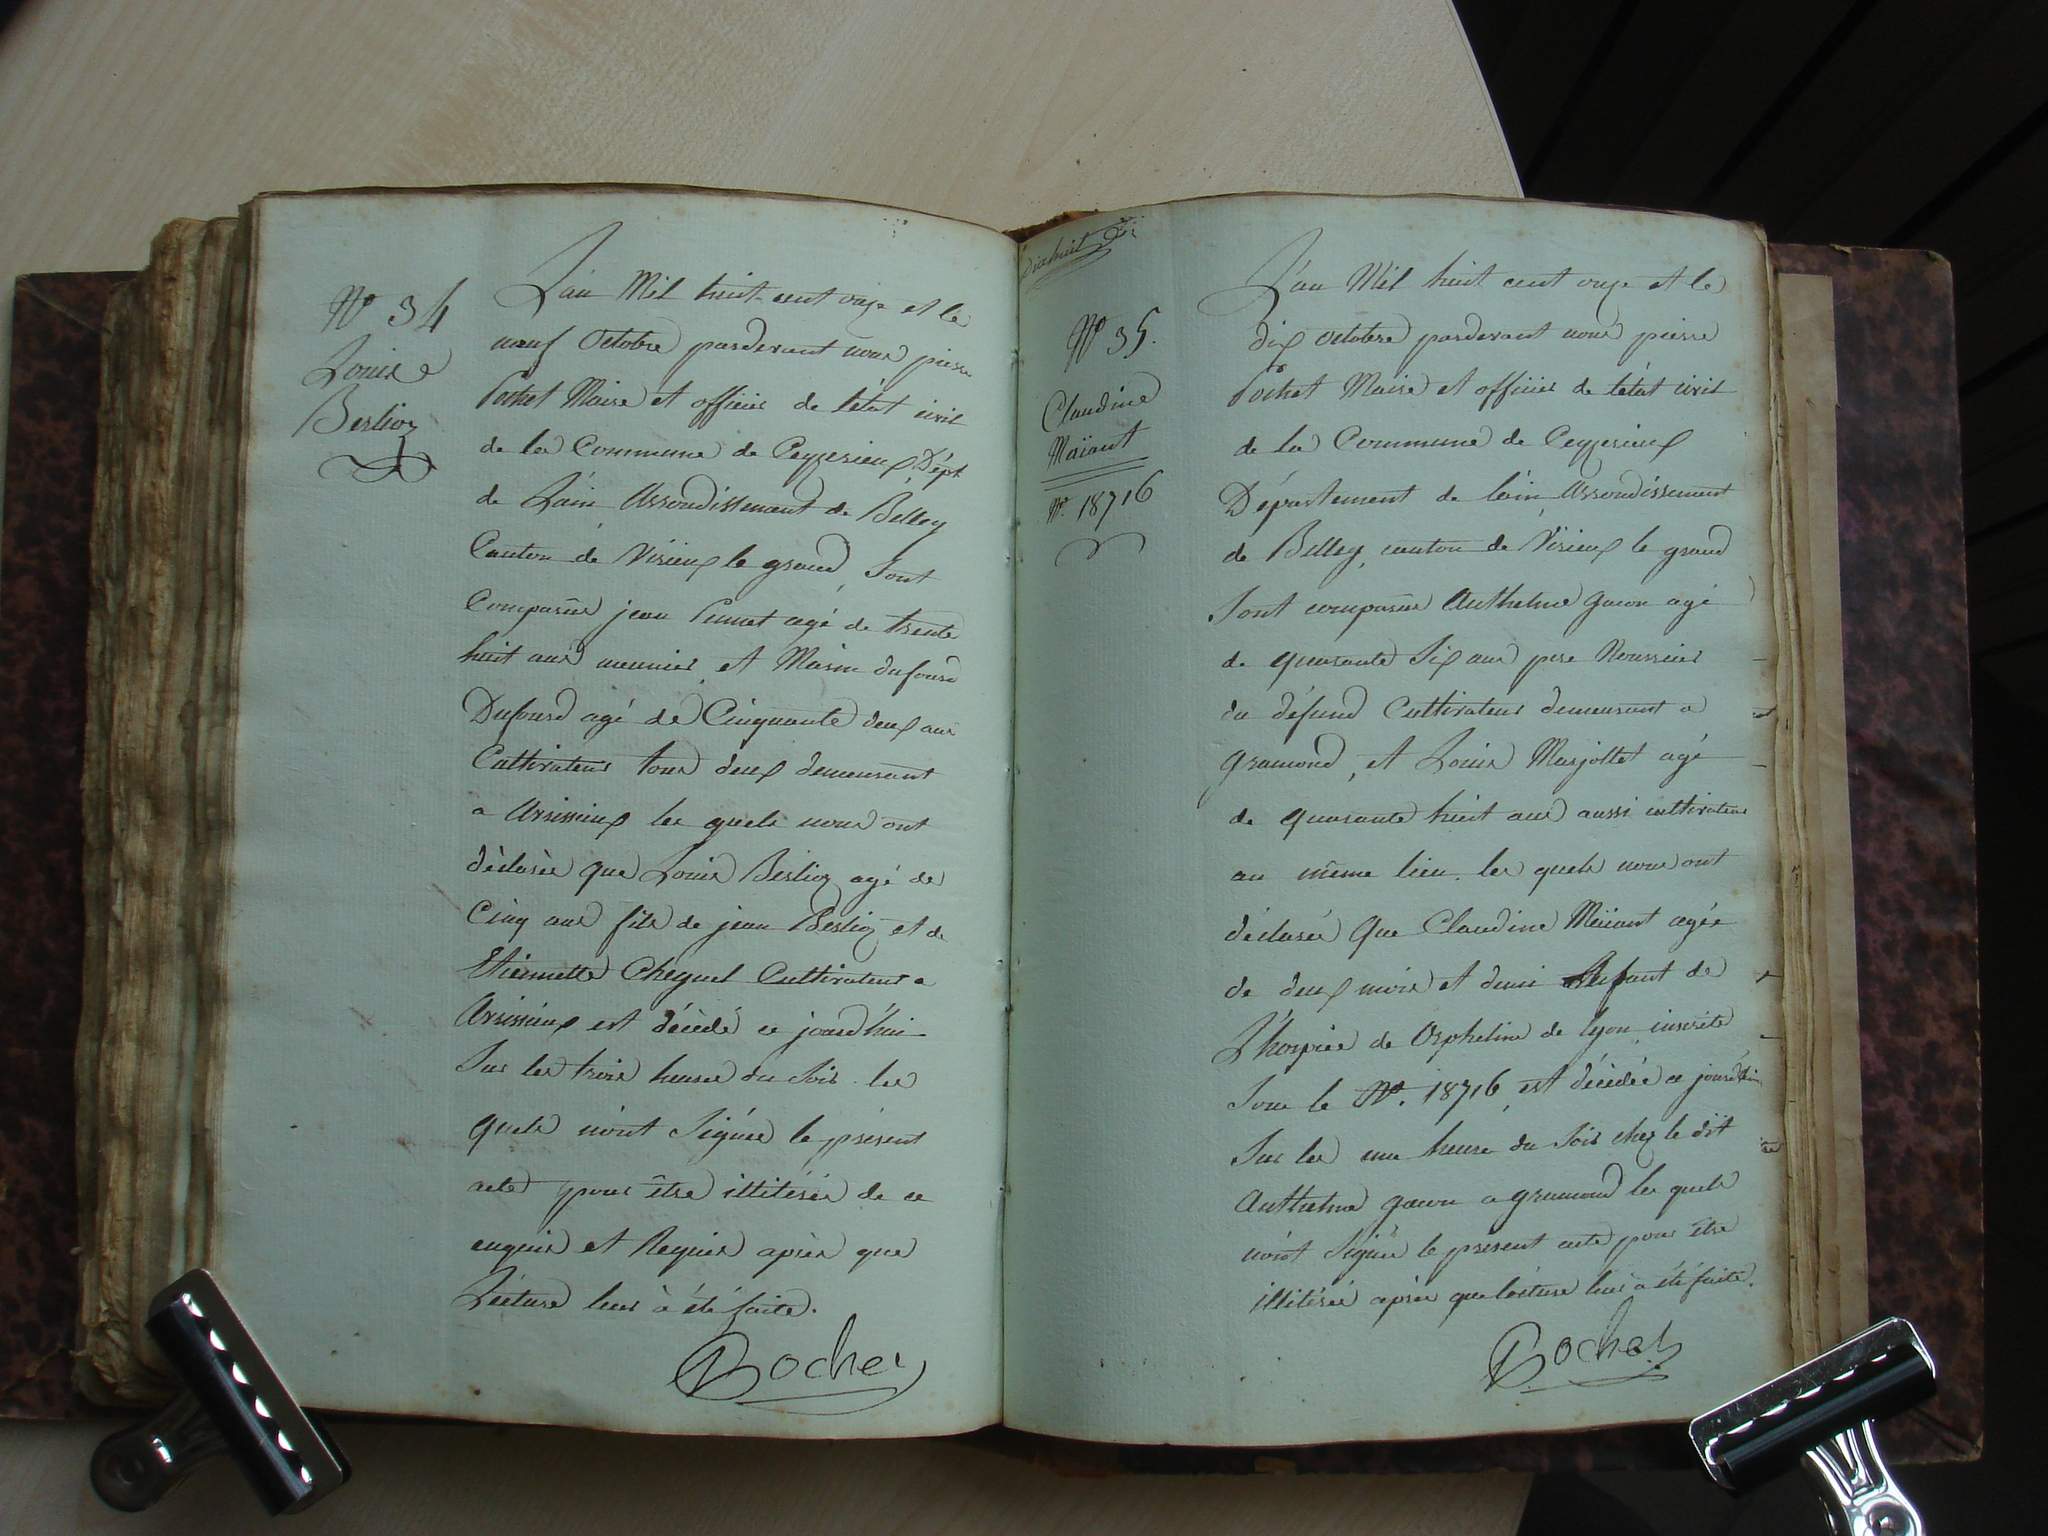 N° 34
Louis
Berlioz
L'an Mil huit cent onze et le
neuf Octobre pardevant nous pierre
Pochet Maire et officier de l'état civil
de la Commune de Ceyzerieux Dépt
de Lain Arrondissement de Belley
Canton de Virieux le grand, Sont
Comparus jean Pumet agé de trente
huit ans meunier, et Marin dufourd
Dufourd agé de Cinquante deux ans
Cultivateur tous deux demeurant
a Avrissieux les quels nous ont
déclarés que Louis Berlioz agé de
Cinq ans fils de jean Berlioz et de
Etiennette Cultivateur a
Avrissieux est décédé ce jourd'hui
Sur les trois heures du Soir les
quels n'ont Signés le présent
acte pour être illitérés de ce
enquis et Requis après que
Lécture leur à été faite.
Pochet
Dixhuit
N° 35.
Claudine
Maïant
N°. 18716
L'an Mil huit cent onze et le
dix octobre pardevant nous pierre
Pochet Maire et officier de l'état civil
de la Commune de Ceyzerieux
Département de lain Arrondissement
de Belley, canton de Virieux le grand
Sont comparus Anthelme gacon agé
de quarante Six ans pere Nourricier
du défund Cultivateur demeurant a
gramond, et Louis Marjollet agé
de quarante huit ans aussi cultivateur
au même lieu. les quels nous ont
déclarés que Claudine Maïant agée
de deux mois et demi Enfant de
L'hospice de Orpheline de lyon, inscrite
Sous le N°. 18716, est décédée ce jourd'hui
Sur les une heure du Soir chez le dit
Anthelme gacon a gramond les quels
n'ont Signés le present acte pour être
illitérés après que lécture leur à été faite.
Pochet